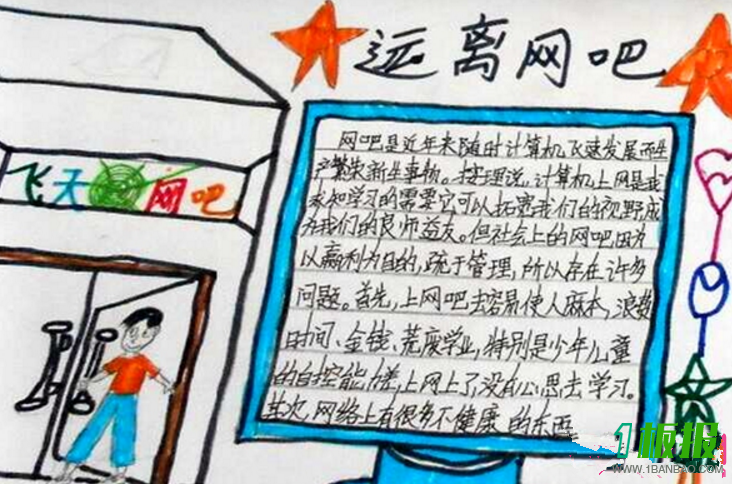 远离网吧
飞天网吧
网吧是近年来随时计算机飞速发展而生
产繁荣新生事物。按理说,计算机上网是我
求知学习的需要它可以拓宽我们的视野成
为我们的良师益友。但社会上的网吧因为
以赢利为目的,疏于管理,所以存在许多
问题。首先,上网吧去容易使人麻木,浪费
时间、金钱、荒废学业,特别是少年儿童
的自控能差,上网上了,没有心思去学习。
其次,网络上有很多不健康的东西
1板报
WWW.1BANBAO.COM